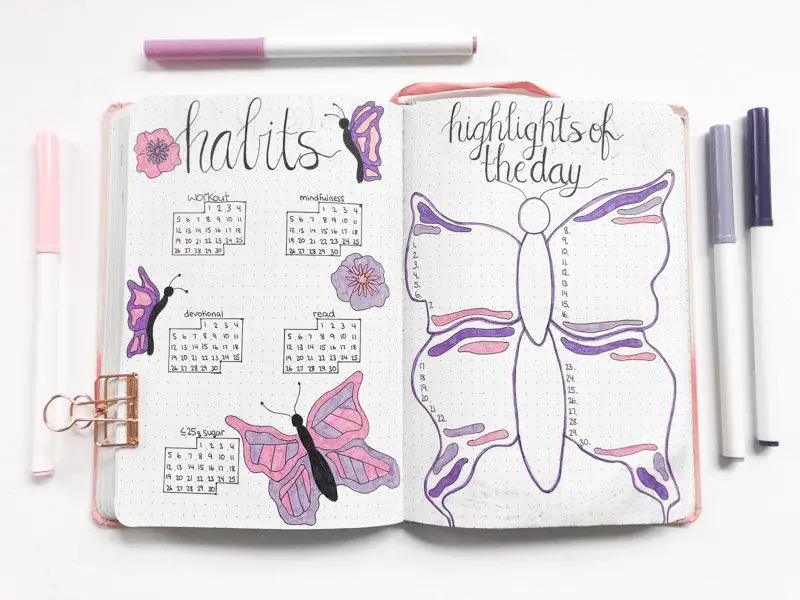 habits
workout
1 2 3 4
5 6 7 8 9 10 11
12 13 14 15 16 17 18
19 20 21 22 23 24 25
26 27 28 29 30
mindfulness
1 2 3 4
5 6 7 8 9 10 11
12 13 14 15 16 17 18
19 20 21 22 23 24 25
26 27 28 29 30
devotional
1 2 3 4
5 6 7 8 9 10 11
12 13 14 15 16 17 18
19 20 21 22 23 24 25
26 27 28 29 30
read
1 2 3 4
5 6 7 8 9 10 11
12 13 14 15 16 17 18
19 20 21 22 23 24 25
26 27 28 29 30
≤25g sugar
1 2 3 4
5 6 7 8 9 10 11
12 13 14 15 16 17 18
19 20 21 22 23 24 25
26 27 28 29 30
highlights of
the day
1.
2.
3.
4.
5.
6.
7.
8.
9.
10.
11.
12.
13.
14.
15.
16.
17.
18.
19.
20.
21.
22.
23.
24.
25.
26.
27.
28.
29.
30.